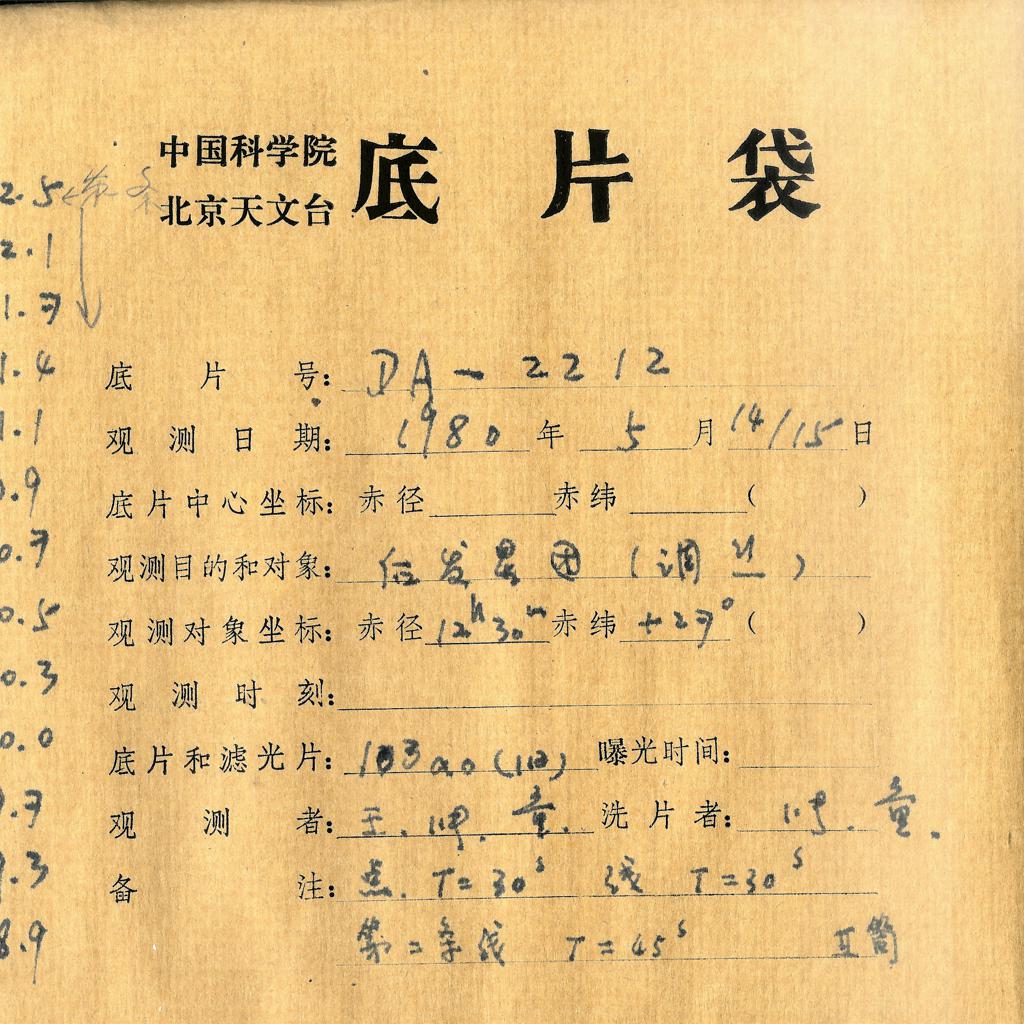 中国科学院
北京天文台
底片袋
2.5 ← 第 条
2.1
1.7
1.4
1.1
0.9
0.7
0.5
0.3
0.0
9.7
9.3
8.9
底片号: DA-2212
观测日期: 1980年5月14/15日
底片中心坐标: 赤径 赤纬 ( )
观测目的和对象: 后发星团 (调 )
观测对象坐标: 赤径 12h30m 赤纬 +27° ( )
观测时刻:
底片和滤光片: 103aO (旧) 曝光时间:
观测者: 王. . 童. 洗片者: . 童.
备注: 点. T=30s 线 T=30s
第二条线 T=45s